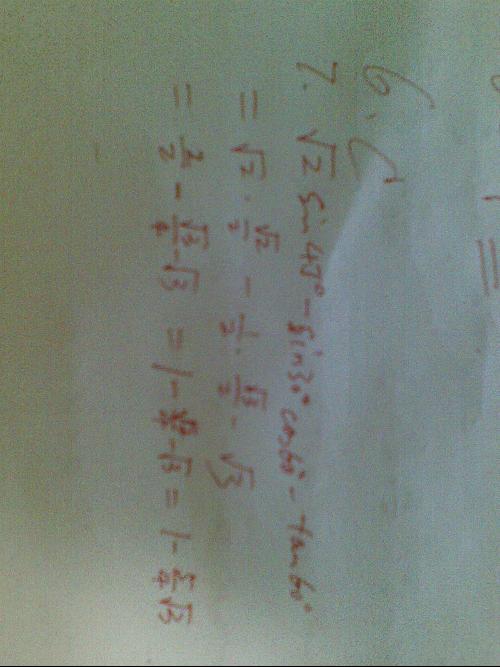 6. C
7. √2 sin45° - sin30° cos60° - tan60°
= √2 · √2/2 - 1/2 · √3/2 - √3
= 2/2 - √3/4 - √3 = 1 - √3/4 - √3 = 1 - 5/4 √3